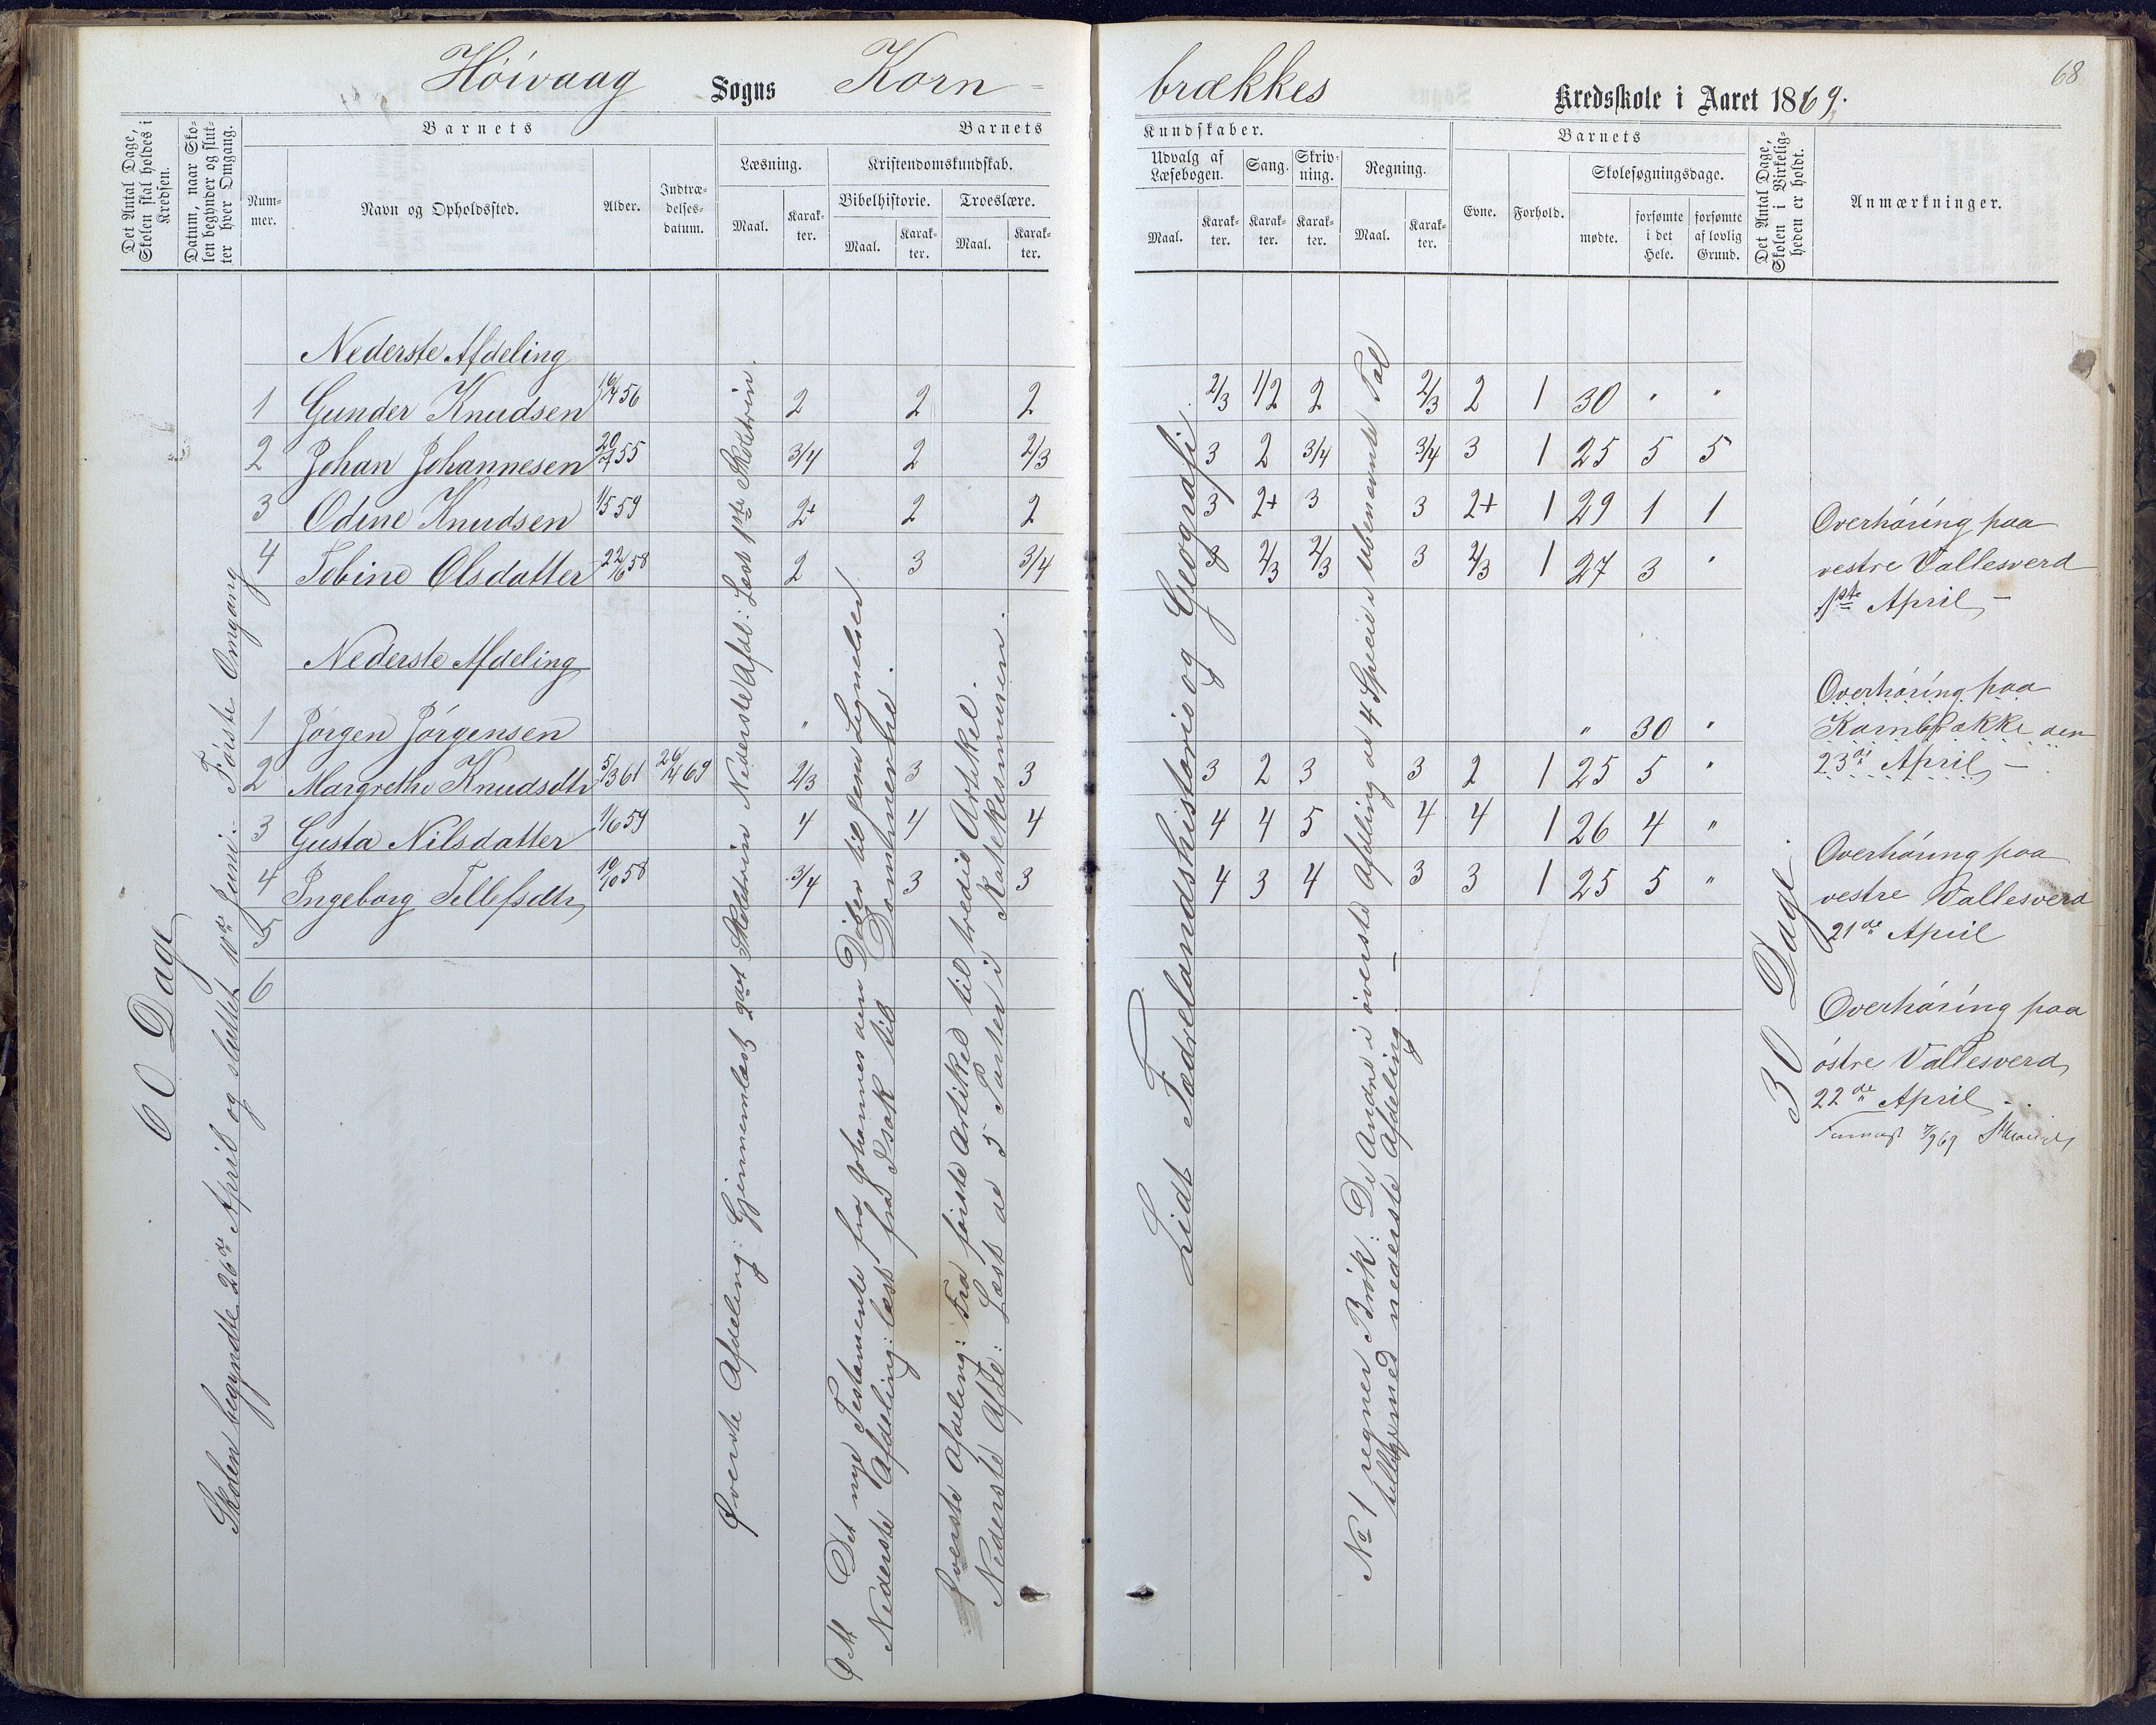 Höivaag Sogns Korn-
brækkes Kredsskole i Aaret 1869.
68
Det Antal Dage, Skolen skal holdes i Kredsen.
Datum, naar Skolen begynder og slutter hver Omgang.
Barnets
Nummer.
Navn og Opholdssted.
Alder.
Indtrædelsesdatum.
Barnets
Læsning.
Maal.
Karakter.
Kristendomskundskab.
Bibelhistorie.
Maal.
Karakter.
Troeslære.
Maal.
Karakter.
Kundskaber.
Udvalg af Læsebogen.
Maal.
Karakter.
Sang.
Karakter.
Skrivning.
Karakter.
Regning.
Maal.
Karakter.
Barnets
Evne.
Forhold.
Skolesøgningsdage.
mødte.
forsømte i det Hele.
forsømte af lovlig Grund.
Det Antal Dage, Skolen i Virkeligheden er holdt.
Anmærkninger.
60 Dage
Skolen begyndte 26de April og sluttet 10de Juni. Første Omgang
Nederste Afdeling
1 Gunder Knudsen 19/4 56 2 2 2 2/3 1/2 2 2/3 2 1 30 " "
2 Johan Johannesen 20/7 55 3/4 2 2/3 3 2 3/4 3/4 3 1 25 5 5
3 Odine Knudsen 1/5 59 2+ 2 2 3 2+ 3 3 2+ 1 29 1 1
4 Tobine Olsdatter 22/6 58 2 3 3/4 3 2/3 2/3 3 2/3 1 27 3 "
Nederste Afdeling
1 Jörgen Jörgensen " " 30 "
2 Margrethe Knudsdtr 5/3 61 26/4 69 2/3 3 3 3 2 3 3 2 1 25 5 "
3 Gusta Nilsdatter 1/6 59 4 4 4 4 4 5 4 4 1 26 4 "
4 Ingeborg Tellefsdtr 10/10 58 3/4 3 3 4 3 4 3 3 1 25 5 "
5
6
Øverste Afdeling: Gjennemlæst 2det Skoletrin Nederste Afdl: Læst 1ste Skoletrin.
Ø. Afd. Det nye Testamente fra Johannes den Døber til Jesu Lignelser
Nederste Afdeling: læst fra Isak til Dommerne.
Øverste Afdeling: Fra første Artikel til tredie Artikel.
Nederste Afdl: Læst de 5 Parter i Katekismusen.
Lidt Fædrelandshistorie og Geografi
No 1 regner Brök: De Andre i överste Afdeling de 4 Specier i ubenævnte Tal
tilligemed nederste Afdeling. —
30 Dage.
Overhöring paa
vestre Vallesverd
1ste April, —
Overhöring paa
Kornbrække den
23de April, —
Overhöring paa
vestre Vallesverd
21de April
Overhöring paa
östre Vallesverd
22de April -
7/9 69